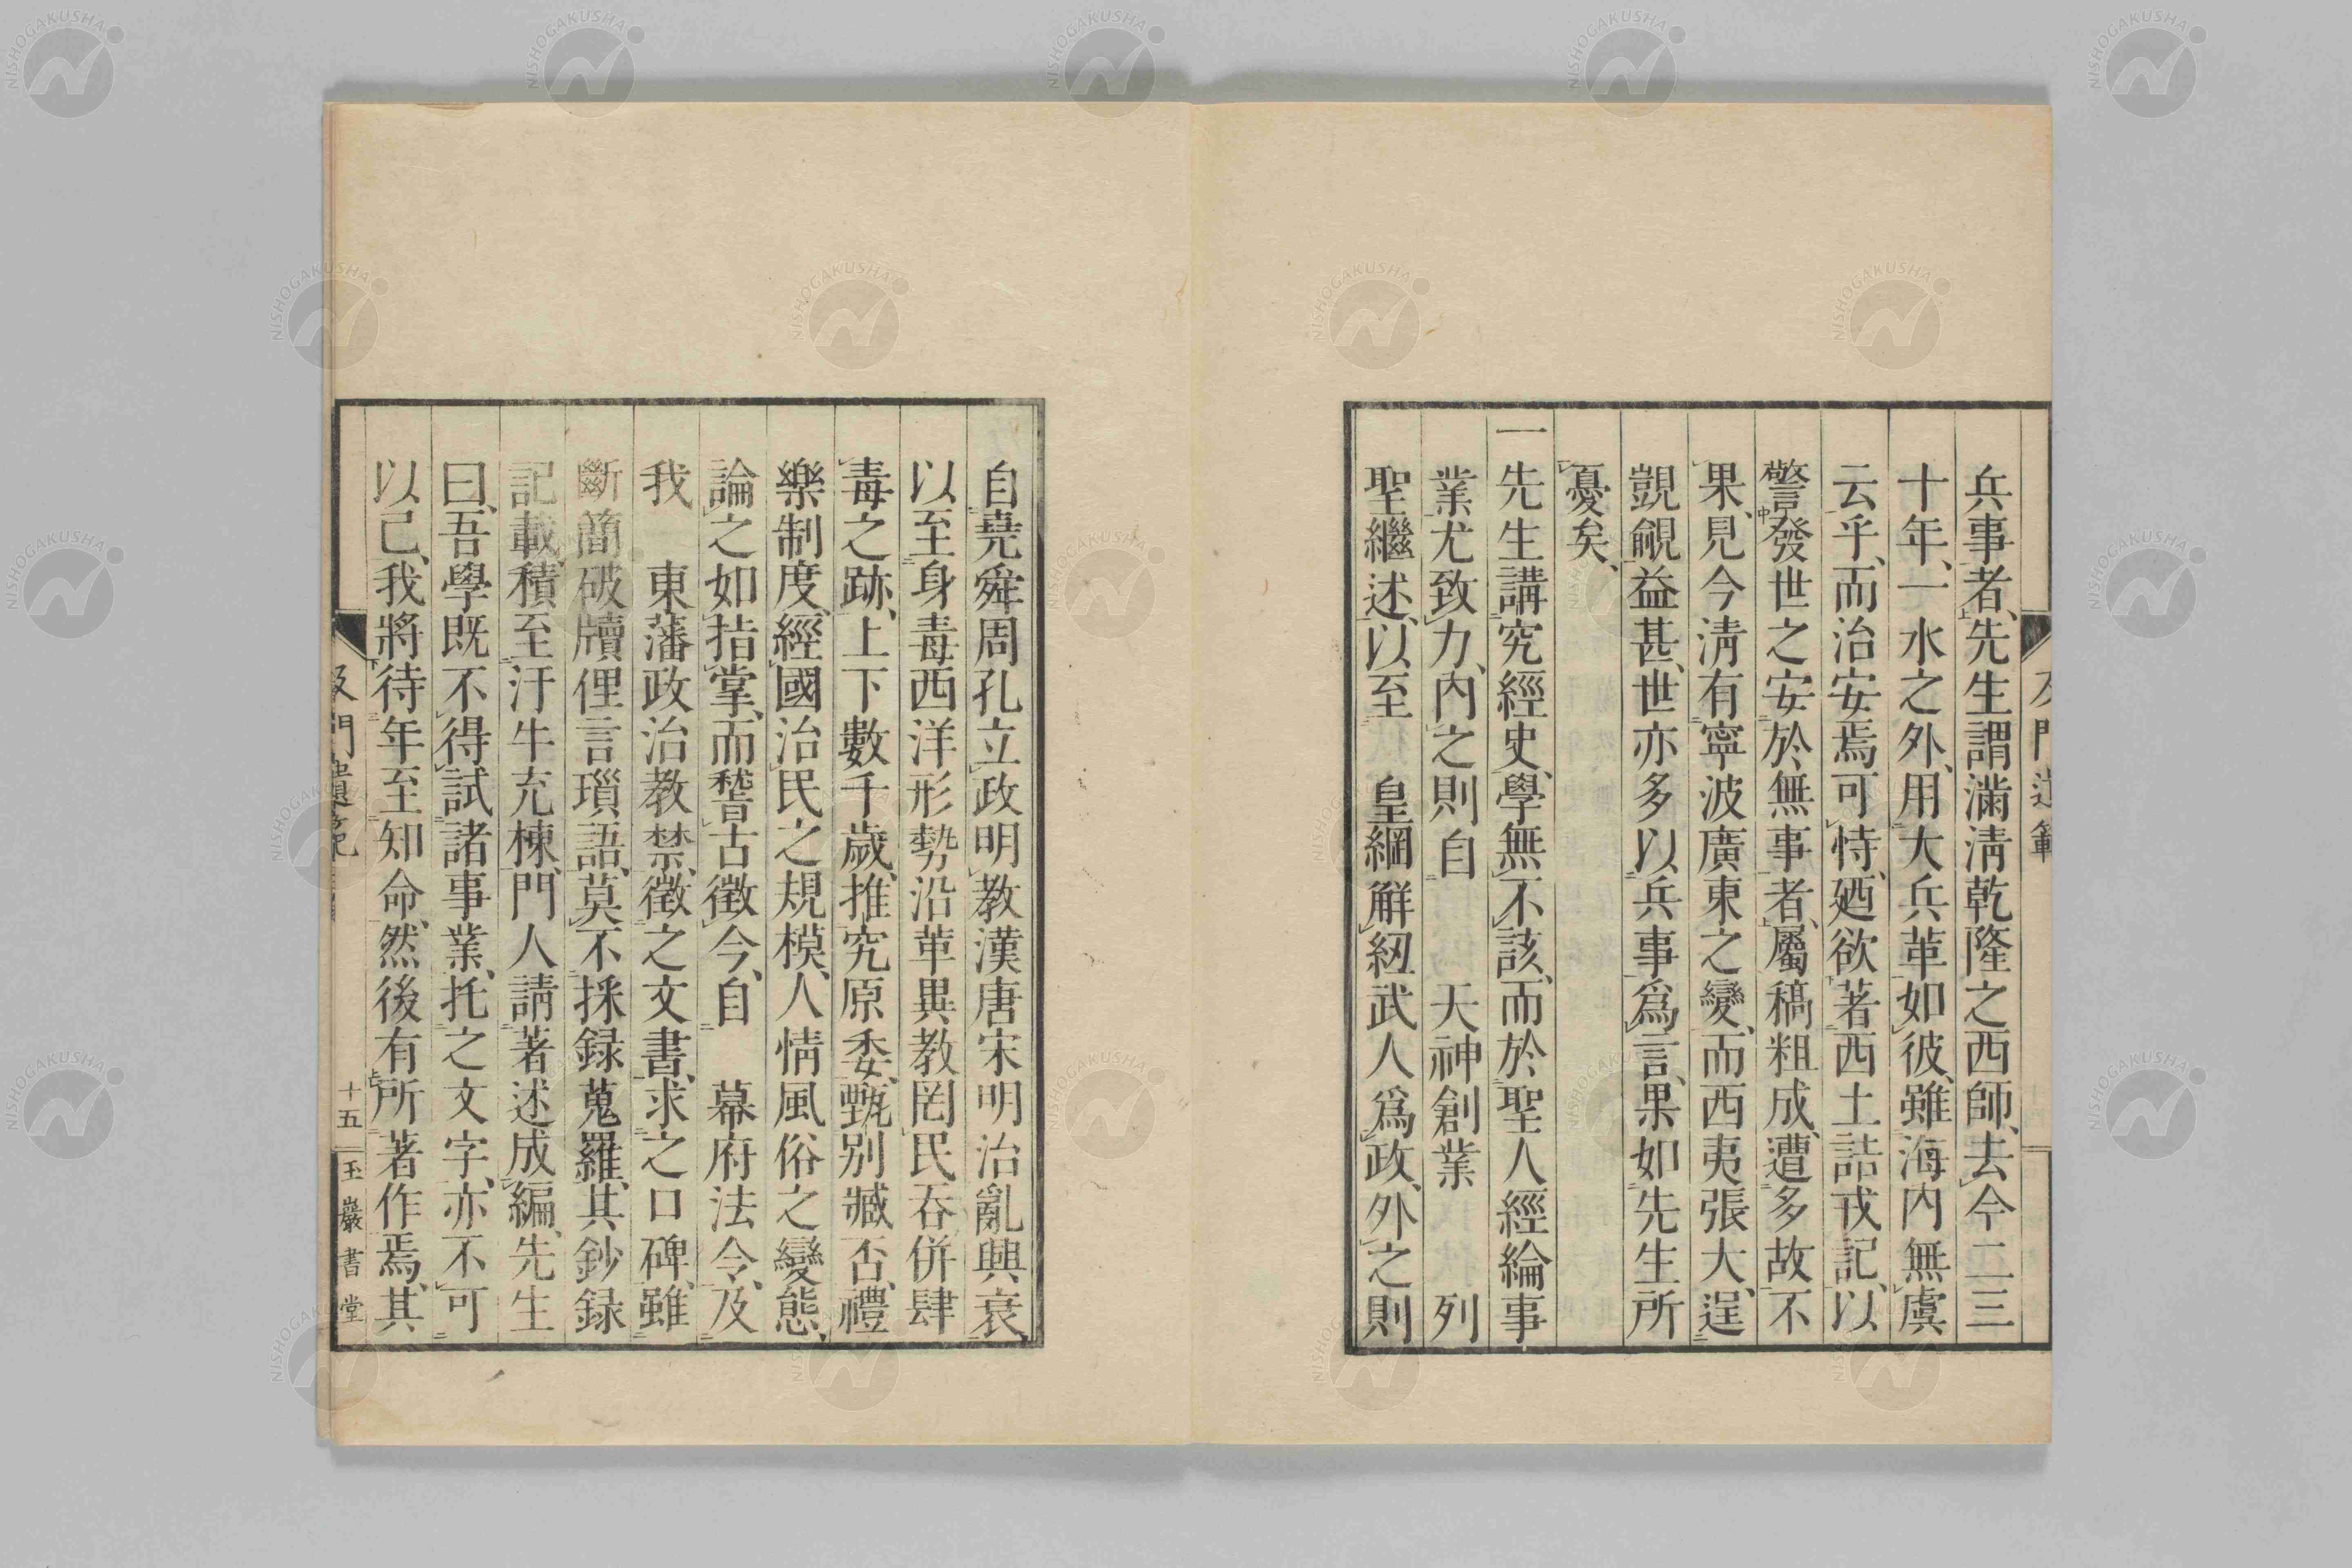 兵事者、先生謂滿淸乾隆之西師、去今二三
十年、一水之外、用大兵革如彼、雖海內無虞
云乎、而治安焉可恃、廼欲著西土詰戎記、以
警發世之安於無事者、屬稿粗成、遭多故不
果、見今淸有寧波廣東之變、而西夷張大、逞
覬覦益甚、世亦多以兵事爲言、果如先生所
憂矣、
一先生講究經史、學無不該、而於聖人經綸事
業尤致力、內之則自　天神創業　列
聖繼述、以至　皇綱解紐武人爲政、外之則
自堯舜周孔立政明教漢唐宋明治亂興衰、
以至身毒西洋形勢沿革異教罔民吞併肆
毒之跡、上下數千歲、推究原委、甄別臧否、禮
樂制度、經國治民之規模、人情風俗之變態、
論之如指掌、而稽古徵今、自　幕府法令、及
我　東藩政治教禁、徵之文書、求之口碑、雖
斷簡破牘俚言瑣語、莫不採錄蒐羅、其鈔錄
記載、積至汙牛充棟、門人請著述成編、先生
曰、吾學既不得試諸事業、托之文字、亦不可
以已、我將待年至知命、然後有所著作焉、其
及門遺範
十五
玉巖書堂
NISHOGAKUSHA